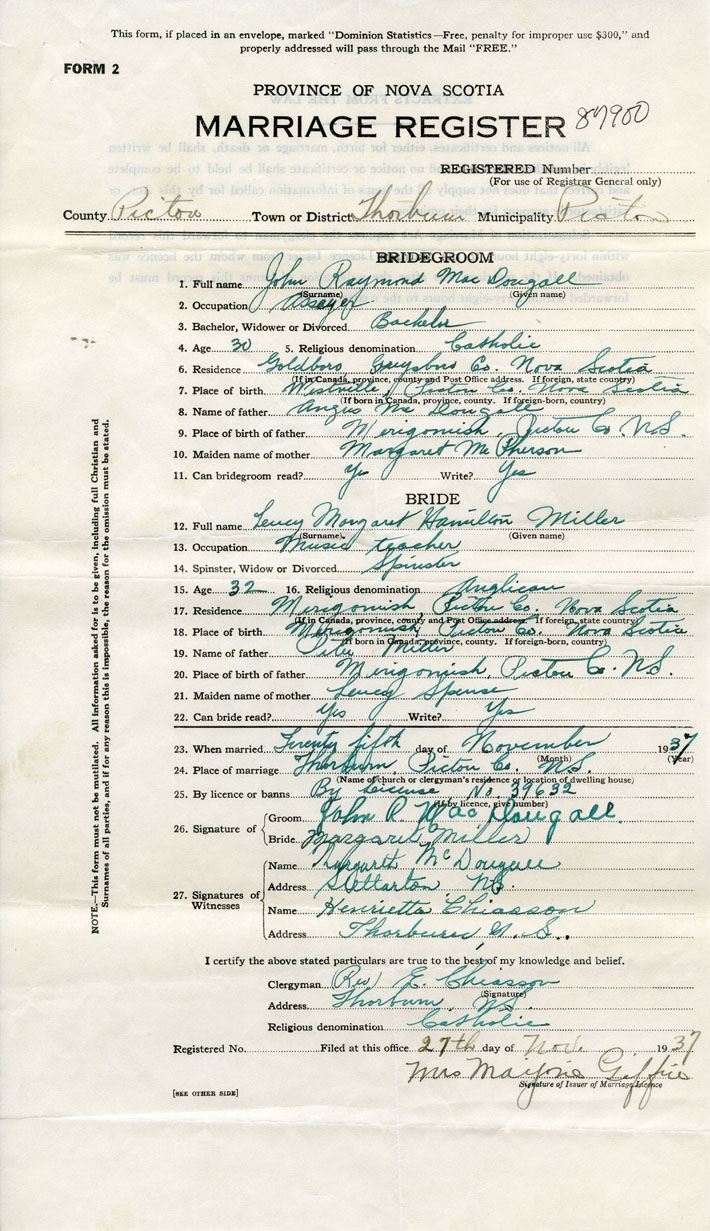 This form, if placed in an envelope, marked "Dominion Statistics—Free, penalty for improper use $300," and
properly addressed will pass through the Mail "FREE."
FORM 2
PROVINCE OF NOVA SCOTIA
MARRIAGE REGISTER 87900
REGISTERED Number
(For use of Registrar General only)
County Pictou Town or District Thorburn Municipality Pictou
BRIDEGROOM
1. Full name John Raymond MacDougall
(Surname) (Given name)
2. Occupation Assayer
3. Bachelor, Widower or Divorced Bachelor
4. Age 30 5. Religious denomination Catholic
6. Residence Goldboro Guysboro Co. Nova Scotia
(If in Canada, province, county and Post Office address. If foreign, state country)
7. Place of birth Westville, Pictou Co. Nova Scotia
(If born in Canada, province, county. If foreign-born, country)
8. Name of father Angus McDougall
9. Place of birth of father Merigomish, Pictou Co. N.S.
10. Maiden name of mother Margaret McPherson
11. Can bridegroom read? Yes Write? Yes
BRIDE
12. Full name Leucy Margaret Hamilton Miller
(Surname) (Given name)
13. Occupation Music teacher
14. Spinster, Widow or Divorced Spinster
15. Age 32 16. Religious denomination Anglican
17. Residence Merigomish, Pictou Co. Nova Scotia
(If in Canada, province, county and Post Office address. If foreign, state country)
18. Place of birth Merigomish, Pictou Co. Nova Scotia
(If born in Canada, province, county. If foreign-born, country)
19. Name of father Peter Miller
20. Place of birth of father Merigomish, Pictou Co. N.S.
21. Maiden name of mother Leucy Spense
22. Can bride read? Yes Write? Yes
23. When married Twenty fifth day of November 1937
(Month) (Year)
24. Place of marriage Thorburn, Pictou Co. N.S.
(Name of church or clergyman's residence or location of dwelling house)
25. By licence or banns By License No. 39632
(If by licence, give number)
26. Signature of Groom John R. MacDougall
Bride Margaret Miller
27. Signatures of Witnesses
Name McDougall
Address Stellarton N.S.
Name Henrietta Chiasson
Address Thorburn N.S.
I certify the above stated particulars are true to the best of my knowledge and belief.
Clergyman (Rev) E. Chiasson
(Signature)
Address Thorburn, N.S.
Religious denomination Catholic
Registered No. Filed at this office 27th day of Nov. 1937
Mrs Marjorie Giffin
Signature of Issuer of Marriage Licence
[SEE OTHER SIDE]
NOTE.—This form must not be mutilated. All information asked for is to be given, including full Christian and
Surnames of all parties, and if for any reason this is impossible, the reason for the omission must be stated.